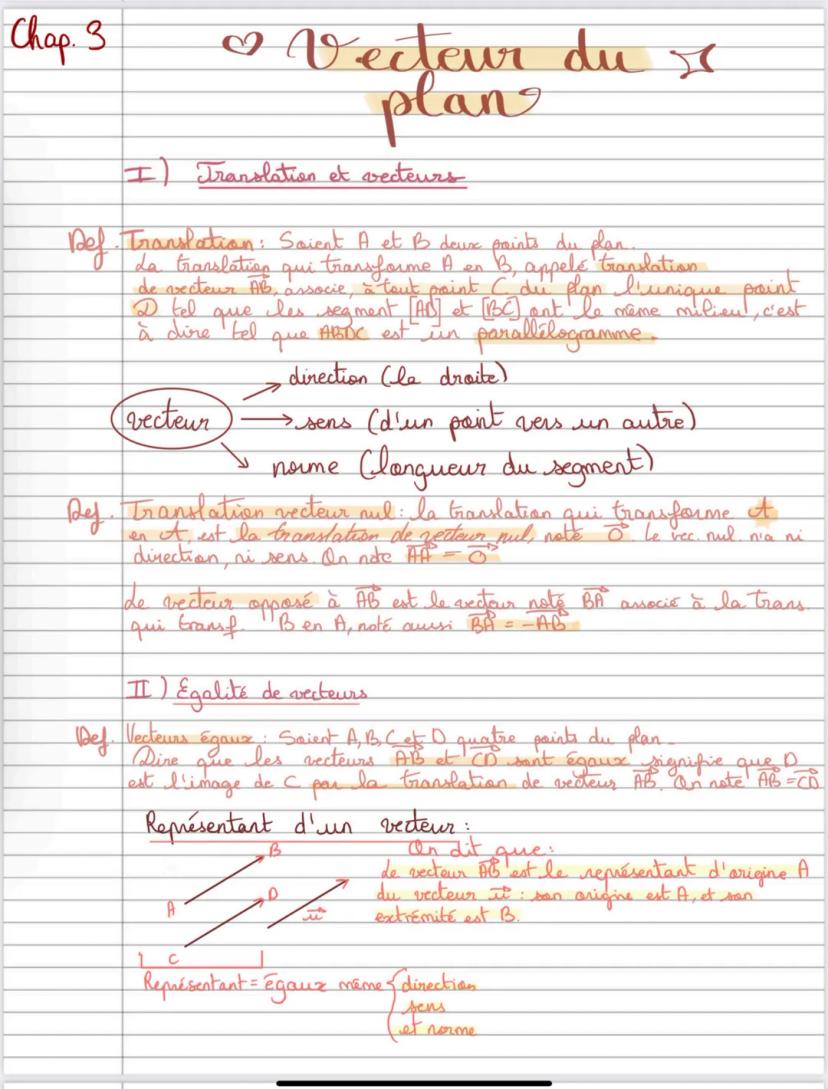 Chap. 3
Vecteur du
plan
I) Translation et vecteurs
Def. Translation : Soient A et B deux points du plan.
La translation qui transforme A en B, appelé translation
de vecteur AB, associe, à tout point C du plan l'unique point
D tel que les segment [AD] et [BC] ont le même milieu, c'est
à dire tel que ABDC est un parallélogramme.
direction (la droite)
vecteur
sens (d'un point vers un autre)
norme (longueur du segment)
Def. Translation vecteur nul : la translation qui transforme A
en A, est la translation de vecteur nul, noté 0. Le vec. nul n'a ni
direction, ni sens. On note AA = 0
Le vecteur opposé à AB est le vecteur noté BA associé à la trans.
qui transf. " B en A, noté aussi BA = -AB
II) Égalité de vecteurs
Def. Vecteurs égaux : Soient A, B, C et D quatre points du plan.
Dire que les vecteurs AB et CD sont égaux signifie que D
est l'image de C par la translation de vecteur AB. On note AB = CD
Représentant d'un vecteur :
B
On dit que :
le vecteur AB est le représentant d'origine A
D
A
u
du vecteur u : son origine est A, et son
extrémité est B.
C
Représentant = égaux même { direction
sens
et norme